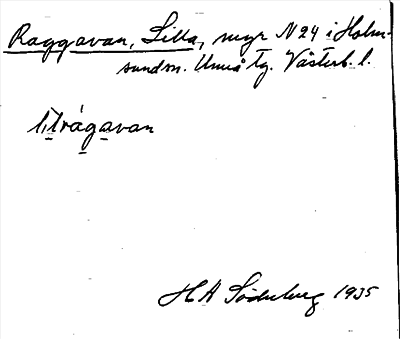 Raggavan, Lilla, myr N 24 i Holm-
sundsn. Umeå tg. Västerb. l.
H A Söderberg 1935